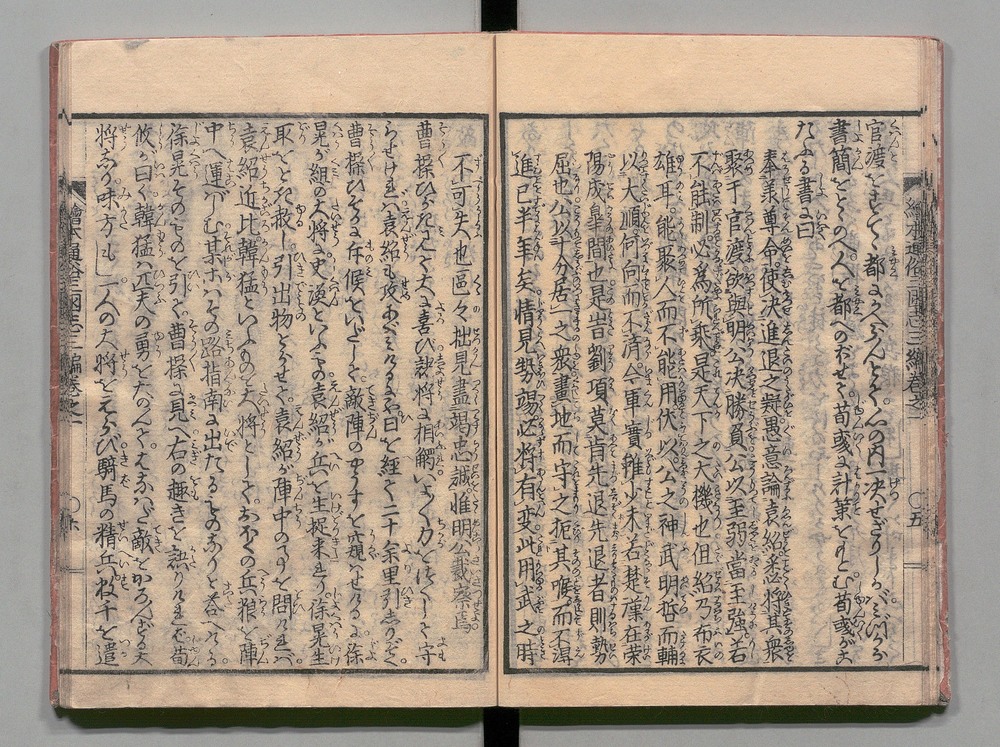 官渡をすてゝ都にかへらんとして心の内決せざりしかバミづから
書簡をとゝのへ人を都へのぼせて荀彧に計策をもとむ荀彧がこ
たふる書に曰
奉承尊命使決進退之疑愚意論袁紹悉將其衆
聚于官渡欲與明公決勝負公以至弱當至強若
不能制必爲所乗是天下之大機也但紹乃布衣
雄耳能聚人而不能用伏以公之神武明哲而輔
以大順何向而不済今軍實雖少未若楚漢在滎
陽成皐間也是時劉項莫肯先退先退者則勢
屈也公以十分居一之衆畫地而守之扼其喉而不得
進已半年矣情見勢竭必將有変此用武之時
繪本通俗三國志三編卷之一 〇五
不可失也區々拙見盡竭忠誠惟明公裁察焉
曹操ひらき見て大に喜び諸將に相觸いよ〳〵力をつくして守
らせけれバ袁紹も攻あぐミけるにや日を經て二十余里引しりぞく
曹操ひそかに斥候をいだして敵陣のやうすを窺はせけるに徐
晃が組の大將に史渙といふもの袁紹が兵を生捉来る徐晃生
取を之救し引出物をとらせて袁紹が陣中のやうを問けれバ
袁紹近比韓猛といふものを大將としておほくの兵粮を陣
中へ運バしむ某ホハその路指南に出たるものなりと答へける
徐晃そのものを引て曹操に見へ右の趣きを語りけれバ荀
攸が曰く韓猛ハ匹夫の勇をたのんでかならバ敵をかろんずる大
將なり味方もし一人の大將をえらび騎馬の精兵数千を遣